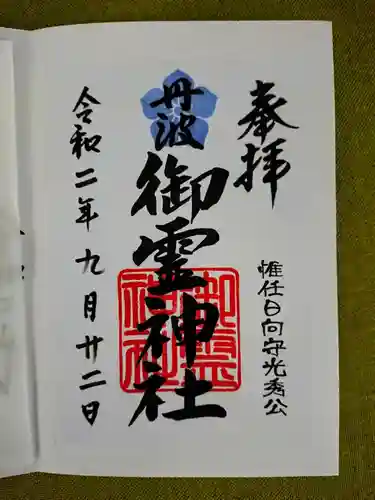 奉拝
惟任日向守光秀公
丹波
御霊神社
御霊神社
令和二年九月廿二日